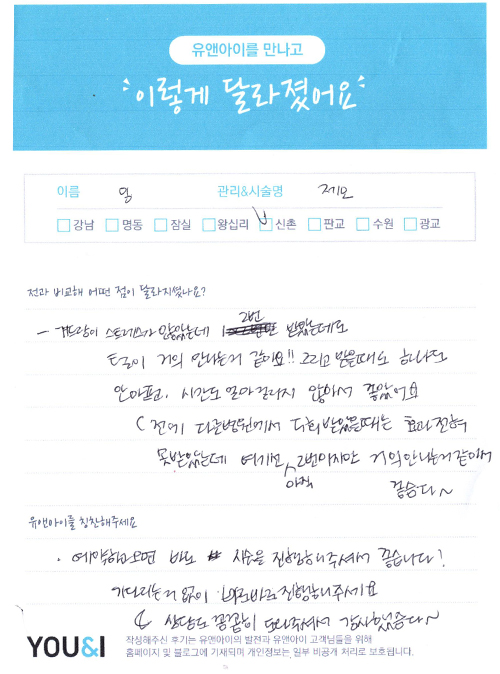 유앤아이를 만나고
이렇게 달라졌어요
이름 관리&시술명 제모
강남 명동 잠실 왕십리 신촌 판교 수원 광교
전과 비교해 어떤 점이 달라지셨나요?
- 겨드랑이 스트레스가 많았는데 2번 받았는데도
털이 거의 안나는거 같아요!! 그리고 받을때도 하나도
안아프고. 시간도 얼마걸리지 않아서 좋았어요
( 전에 다른병원에서 다회받았을때는 효과 전혀
못받았는데 여기선 아직 2번이지만 거의안나는거 같아서
좋습니다~
유앤아이를 칭찬해주세요
· 예약하고오면 바로 시술을 진행해주셔서 좋습니다!
기다리는거 없이 바로바로진행해주세요
& 상담도 꼼꼼히 해주셔서 감사했습니다~
YOU&I
작성해주신 후기는 유앤아이의 발전과 유앤아이 고객님들을 위해
홈페이지 및 블로그에 기재되며 개인정보는 일부 비공개 처리로 보호됩니다.